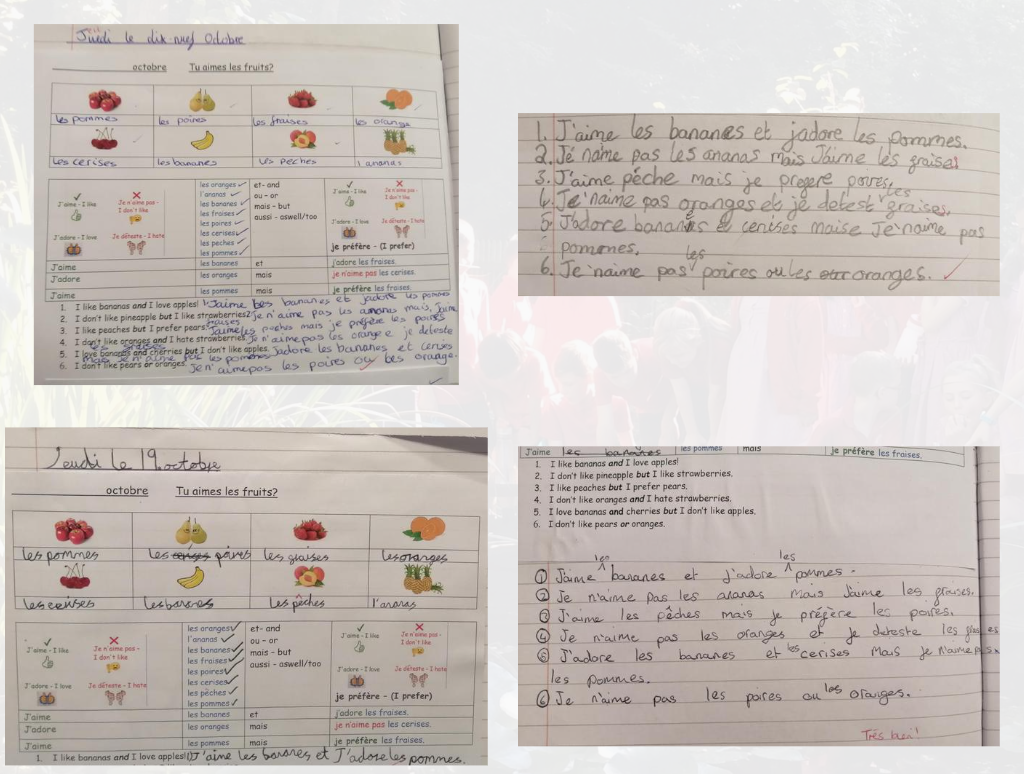 Jeudi le dix-neuf Octobre
octobre Tu aimes les fruits?
les pommes les poires les fraises les orange
les cerises les bananes les pêches l'ananas
J'aime - I like Je n'aime pas - I don't like
J'adore - I love Je déteste - I hate
les oranges
l'ananas
les bananes
les fraises
les poires
les cerises
les peches
les pommes
et- and
ou - or
mais - but
aussi - aswell/too
J'aime - I like Je n'aime pas - I don't like
J'adore - I love Je déteste - I hate
je préfère - (I prefer)
J'aime les bananes et j'adore les fraises.
J'adore les oranges mais je n'aime pas les cerises.
J'aime les pommes mais je préfère les fraises.
1. I like bananas and I love apples! J'aime les bananes et j'adore les pommes
2. I don't like pineapple but I like strawberries. Je n'aime pas les ananas mais J'aime
3. I like peaches but I prefer pears. J'aime les peches mais je préfère les poires
4. I don't like oranges and I hate strawberries. Je n'aime pas les orange e je deteste
5. I love bananas and cherries but I don't like apples. J'adore les bananes et cerises
mais je n'aime pas les pommes
6. I don't like pears or oranges. Je n'aime pas les poires ou les orange.
1. J'aime les bananes et j'adore les pommes.
2. Je' name pas les ananas mais J'aime les graises
3. J'aime pêche mais je pregere poires.
4. Je'naime pas oranges et je detest les graises.
5. J'adore bananes e cerises maise Je'naime pas
pommes.
6. Je 'naime pas les poires ou les oranges.
Jeudi le 19 octobre
octobre Tu aimes les fruits?
les pommes les poires les graises les oranges
les cerises les bananes les pêches l'ananas
J'aime - I like Je n'aime pas - I don't like
J'adore - I love Je déteste - I hate
les oranges
l'ananas
les bananes
les fraises
les poires
les cerises
les pêches
les pommes
et- and
ou - or
mais - but
aussi - aswell/too
J'aime - I like Je n'aime pas - I don't like
J'adore - I love Je déteste - I hate
je préfère - (I prefer)
J'aime les bananes et j'adore les fraises.
J'adore les oranges mais je n'aime pas les cerises.
J'aime les pommes mais je préfère les fraises.
1. I like bananas and I love apples! J'aime les bananes et J'adore les pommes.
J'aime les bananes les pommes mais je préfère les fraises.
1. I like bananas and I love apples!
2. I don't like pineapple but I like strawberries.
3. I like peaches but I prefer pears.
4. I don't like oranges and I hate strawberries.
5. I love bananas and cherries but I don't like apples.
6. I don't like pears or oranges.
1 J'aime les bananes et J'adore les pommes.
2 Je n'aime pas les ananas mais J'aime les graises.
3 J'aime les pêches mais je préfère les poires.
4 Je n'aime pas les oranges et je deteste les
5 J'adore les bananes et les cerises mais je n'aime pas
les pommes.
6 Je n'aime pas les poires ou les oranges.
Très bien!